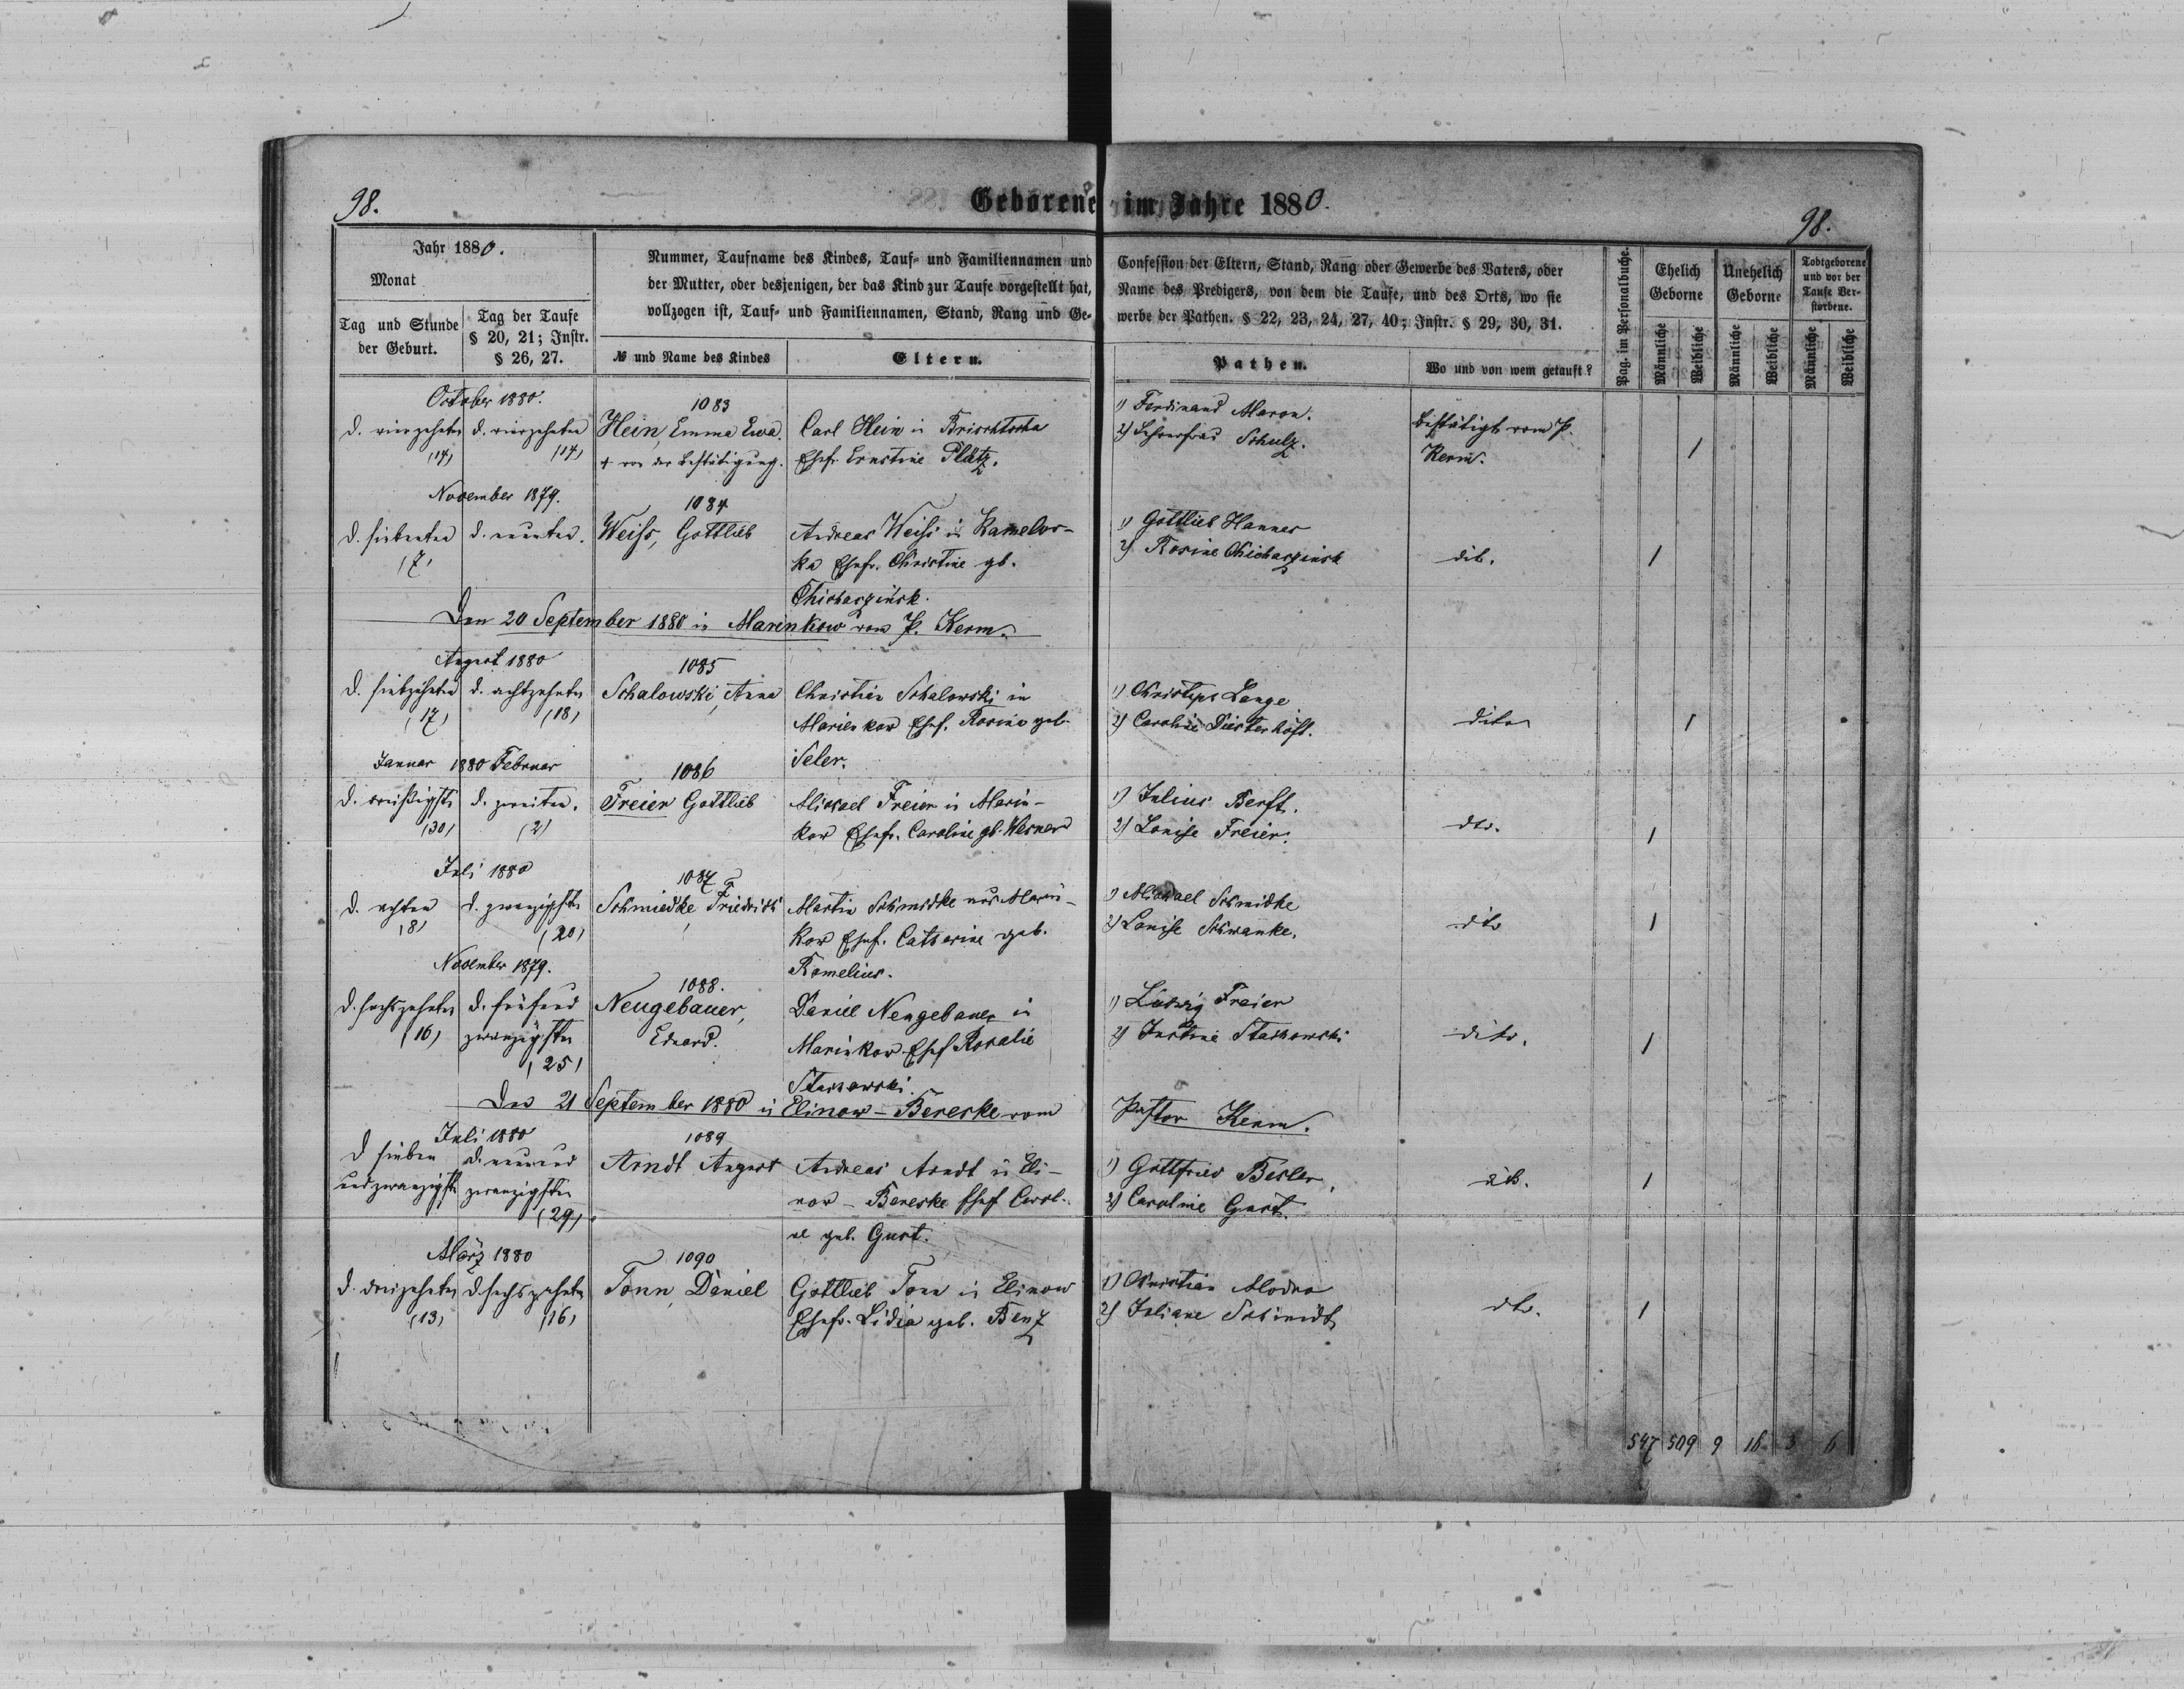 98.
Geborene im Jahre 1880.
98.
Jahr 1880.
Monat
Tag und Stunde der Geburt.
Tag der Taufe § 20, 21; Instr. § 26, 27.
Nummer, Taufname des Kindes, Tauf- und Familiennamen und
der Mutter, oder desjenigen, der das Kind zur Taufe vorgestellt hat,
vollzogen ist, Tauf- und Familiennamen, Stand, Rang und Ge-
№ und Name des Kindes
Eltern.
Confession der Eltern, Stand, Rang oder Gewerbe des Vaters, oder
Name des Predigers, von dem die Taufe, und des Orts, wo sie
werbe der Pathen. § 22, 23, 24, 27, 40; Instr. § 29, 30, 31.
Pathen.
Wo und von wem getauft?
Pag. im Personalbuche.
Ehelich Geborne
Unehelich Geborne
Todtgeborene und vor der Taufe Verstorbene.
Männliche
Weibliche
Männliche
Weibliche
Männliche
Weibliche
October 1880.
1083
d. vierzehnten d. vierzehnten Hein, Emma Ewa. Carl Hein in
(14) (14) + vor der Bestätigung. Ehefr. Ernestine Platz.
1) Ferdinand Maron.
2) Lehrerfrau Schulz.
bestätigt vom P.
Kerm.
1
November 1879.
1084
d. siebenten d. neunten. Weiss, Gottlieb Andreas Weiss in Kamelos-
(7) ka Ehefr. Christine gb.
1) Gottlieb Hannes
2) Rosine
dit.
1
Den 20 September 1880 in Marinkow vom P. Kerm.
August 1880
1085
d. siebzehnten d. achtzehnten Schalowski, Anna Christian Schalowski in
(17) (18) Marienkow Ehef. Rosine geb.
Seler.
1) Christoph Lange
2) Caroline Diesterhöft.
dito
1
Januar 1880 Februar
1086
d. dreißigsten d. zweiten. Freier Gottlieb Michael Freier in Marin-
(30) (2) kow Ehefr. Caroline gb. Werner
1) Julius Berft.
2) Louise Freier.
dto.
1
Juli 1880
1087
d. achten d. zwanzigsten Schmiedke, Friedrich Martin Schmidke aus Marin-
(8) (20) kow Ehef. Catharine geb.
Romelius.
1) Michael Schmidke
2) Louise Schwanke.
dito
1
November 1879.
1088.
d. sechszehnten d. fünfund Neugebauer, Daniel Neugebauer in
(16) zwanzigsten Eduard. Marinkow Ehef Rosalie
(25)
1) Ludwig Freier
2) Justine Stachowski
dito.
1
Den 21 September 1880 in Elinow - Bereske vom Pastor Kerm.
Juli 1880
1089
d sieben d. neunund Arndt August Andreas Arndt in Eli-
undzwanzigsten zwanzigsten now - Bereske Ehef Carol-
(29) ne geb. Gust.
1) Gottfried Bisler,
2) Caroline Gust.
dit.
1
März 1880
1090
d. dreizehnten d. sechszehnten Tonn, Daniel Gottlieb Tonn in Elinow
(13) (16) Ehefr. Lidia geb. Benz
1) Christian Modro
2) Juliane Schmidt
dto.
1
547 509 9 16 3 6